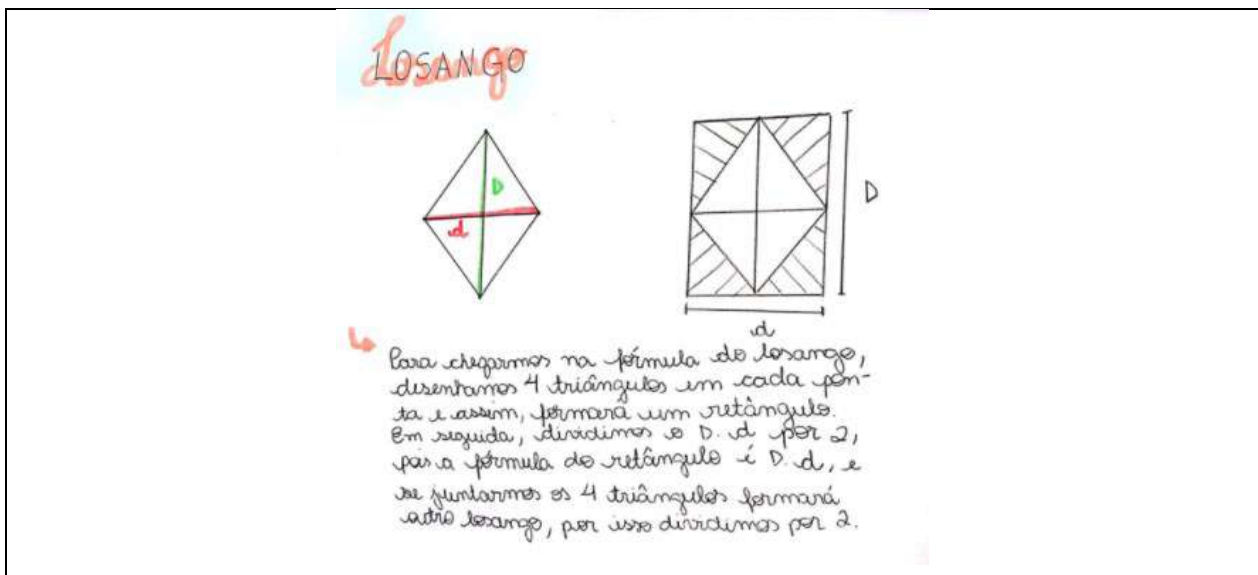 Losango
LOSANGO
D
d
D
d
↳ Para chegarmos na fórmula do losango,
desenhamos 4 triângulos em cada pon-
ta e assim, formará um retângulo.
Em seguida, dividimos o D.d por 2,
pois a fórmula do retângulo é D.d, e
se juntarmos os 4 triângulos formará
outro losango, por isso dividimos por 2.